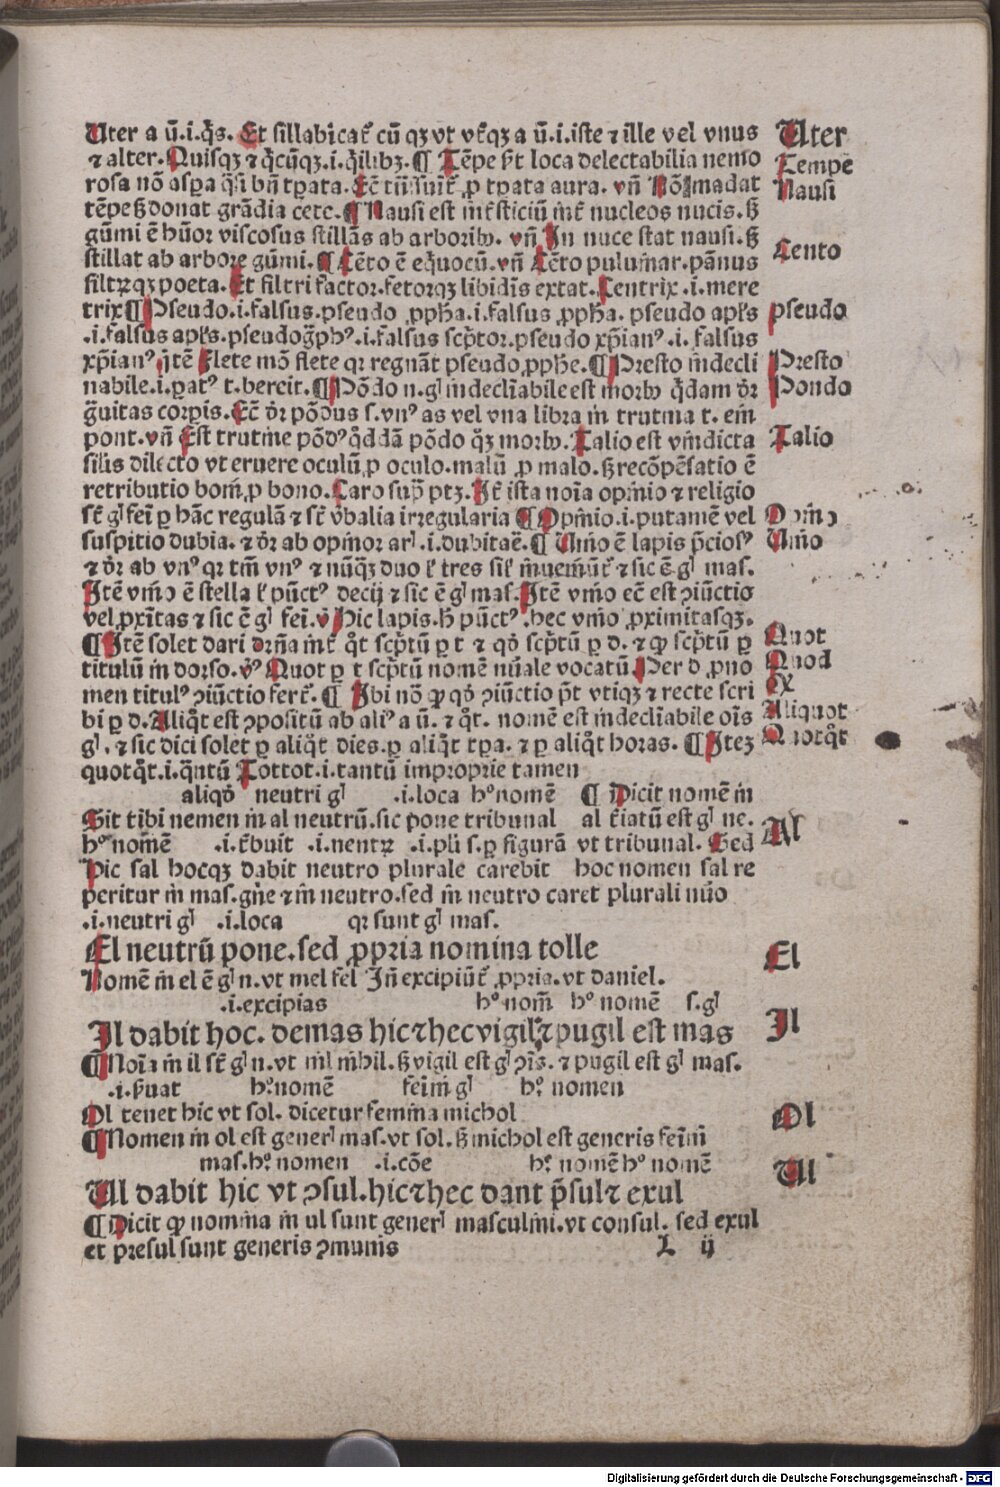 Uter a ū.i.q̄s. Et sillabicat᷑ cū qꝫ vt vt᷑qꝫ a ū.i.iste ⁊ ille vel vnus
⁊ alter. Quisqꝫ ⁊ q̄cūqꝫ.i.q̄libꝫ. ¶ Tēpe loca delectabilia nemo
rosa nō aspa q̄si bn̄ tꝑata. ꝓ tꝑata aura. vn̄ madat
tēpe donat grādia cete. ¶ Nausi est nucleos nucis.
gūmi ē hūor viscosus stillās ab arborib. vn̄ In nuce stat nausi.
stillat ab arbore gūmi. ¶ Cēto ē eq̄uocū. vn̄ Cēto pulumar. pānus
filtrqꝫ poeta. Et filtri factor. fetorqꝫ libidis extat. Centrix .i. mere
trix ¶ Pseudo.i.falsus.pseudo ꝓph̄a.i.falsus ꝓph̄a. pseudo apl̄s
.i.falsus apl̄s.pseudog̃phꝰ.i.falsus scp̄tor.pseudo xp̄ianꝰ.i. falsus
xp̄ianꝰ itē Flete mō flete qr regnāt pseudo ꝓph̄e. ¶ Presto indecli
nabile.i.ꝑatꝰ t. ¶ Pōdo n. gl indeclīabile est q̄dam dr
g̃uitas corpis. Et dr pōdus s. vnꝰ as vel vna libra in trutina t.
pont. vn̄ Est trutine pōdꝰ q̄ddā pōdo. Talio est vindicta
silis delicto vt eruere oculū ꝓ oculo. malū ꝓ malo. recōpēsatio ē
retributio boni ꝓ bono. Caro sup̄ ptꝫ. It᷑ ista noīa opinio ⁊ religio
st᷑ gl fei ꝑ hāc regulā ⁊ st᷑ v̄balia irregularia ¶ Opinio.i.putamē vel
suspitio dubia. ⁊ dr ab opinor aris.i.dubitare. ¶ Unio ē lapis p̄ciosꝰ
⁊ dr ab vnꝰ qr tm̄ vnꝰ ⁊ nūqꝫ duo l tres sil inueniūt᷑ ⁊ sic ē gl mas.
Itē vnio ē stella l pūctꝰ decij ⁊ sic ē gl mas. Itē vnio ec̄ est ↄiūctio
vel ꝓxītas ⁊ sic ē gl fei. Hic lapis. h̄ pūctꝰ. hec vnio ꝓximitasqꝫ.
¶ Itē solet dari dr̄na int᷑ q̊t scp̄tū ꝑ t ⁊ qd̊ scp̄tū ꝑ d. ⁊ ꝙ scp̄tū ꝑ
titulū in dorso. vꝰ Quot ꝑ t scp̄tū nomē nūale vocatū. Per d ꝓno
men titulꝰ ↄiūctio fert᷑. ¶ Ibi nō ꝙ qd̊ ↄiūctio p̄t vtiqꝫ ⁊ recte scri
bi ꝑ d. Aliq̊t est ↄpositū ab aliꝰ a ū. ⁊ q̊t. nomē est indeclīabile oīs
gl. ⁊ sic dici solet ꝑ aliq̊t dies. ꝑ aliq̊t tꝑa. ⁊ ꝑ aliq̊t horas. ¶ Iteꝫ
quotq̊t.i.q̄ntū Tottot.i.tantū improprie tamen
aliqd̊ neutri gl .i.loca hꝰ nomē ¶ Dicit nomē in
Sit tibi nemen in al neutrū.sic pone tribunal al t᷑iatū est gl ne.
hꝰ nomē .i.t᷑buit .i.neutr .i.pli s.ꝑ figurā vt tribunal. Sed
Hic sal hocqꝫ dabit neutro plurale carebit hoc nomen sal re
peritur in mas.gn̄e ⁊ in neutro.sed in neutro caret plurali nūo
.i.neutri gl .i.loca qr sunt gl mas.
El neutrū pone.sed ꝓpria nomina tolle
Nomē in el ē gl n. vt mel fel In̄ excipiūt᷑ ꝓpria. vt daniel.
.i.excipias hꝰ nom̄ hꝰ nomē s.gl
Il dabit hoc. demas hic⁊hec vigil.⁊ pugil est mas
¶ Noīa in il st᷑ gl n. vt nil nihil. vigil est gl ↄis. ⁊ pugil est gl mas.
.i.s̄uat hꝰ nomē feini gl hꝰ nomen
Ol tenet hic vt sol. dicetur femina michol
¶ Nomen in ol est generl mas. vt sol. michol est generis feini
mas.hꝰ nomen .i.cōe hꝰ nomē hꝰ nomē
Ul dabit hic vt ↄsul.hic⁊hec dant p̄sul⁊ exul
¶ Dicit ꝙ nomina in ul sunt generl masculini. vt consul. sed exul
et presul sunt generis ↄmunis L ij
Uter
Tempe
Nausi
Cento
pseudo
Presto
Pondo
Talio
Opinio
Unio
Quot
Quod
Aliquot
Quotq̊t
Al
El
Il
Ol
Ul
Digitalisierung gefördert durch die Deutsche Forschungsgemeinschaft - DFG